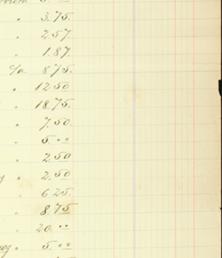 " 3.75
" 2.57
" 1.87
c/a 8.75
" 12.50
" 18.75
" 7.50
" 5.""
" 2.50
" 2.50
" 6.25
" 8.75
" 20.""
" 5.""